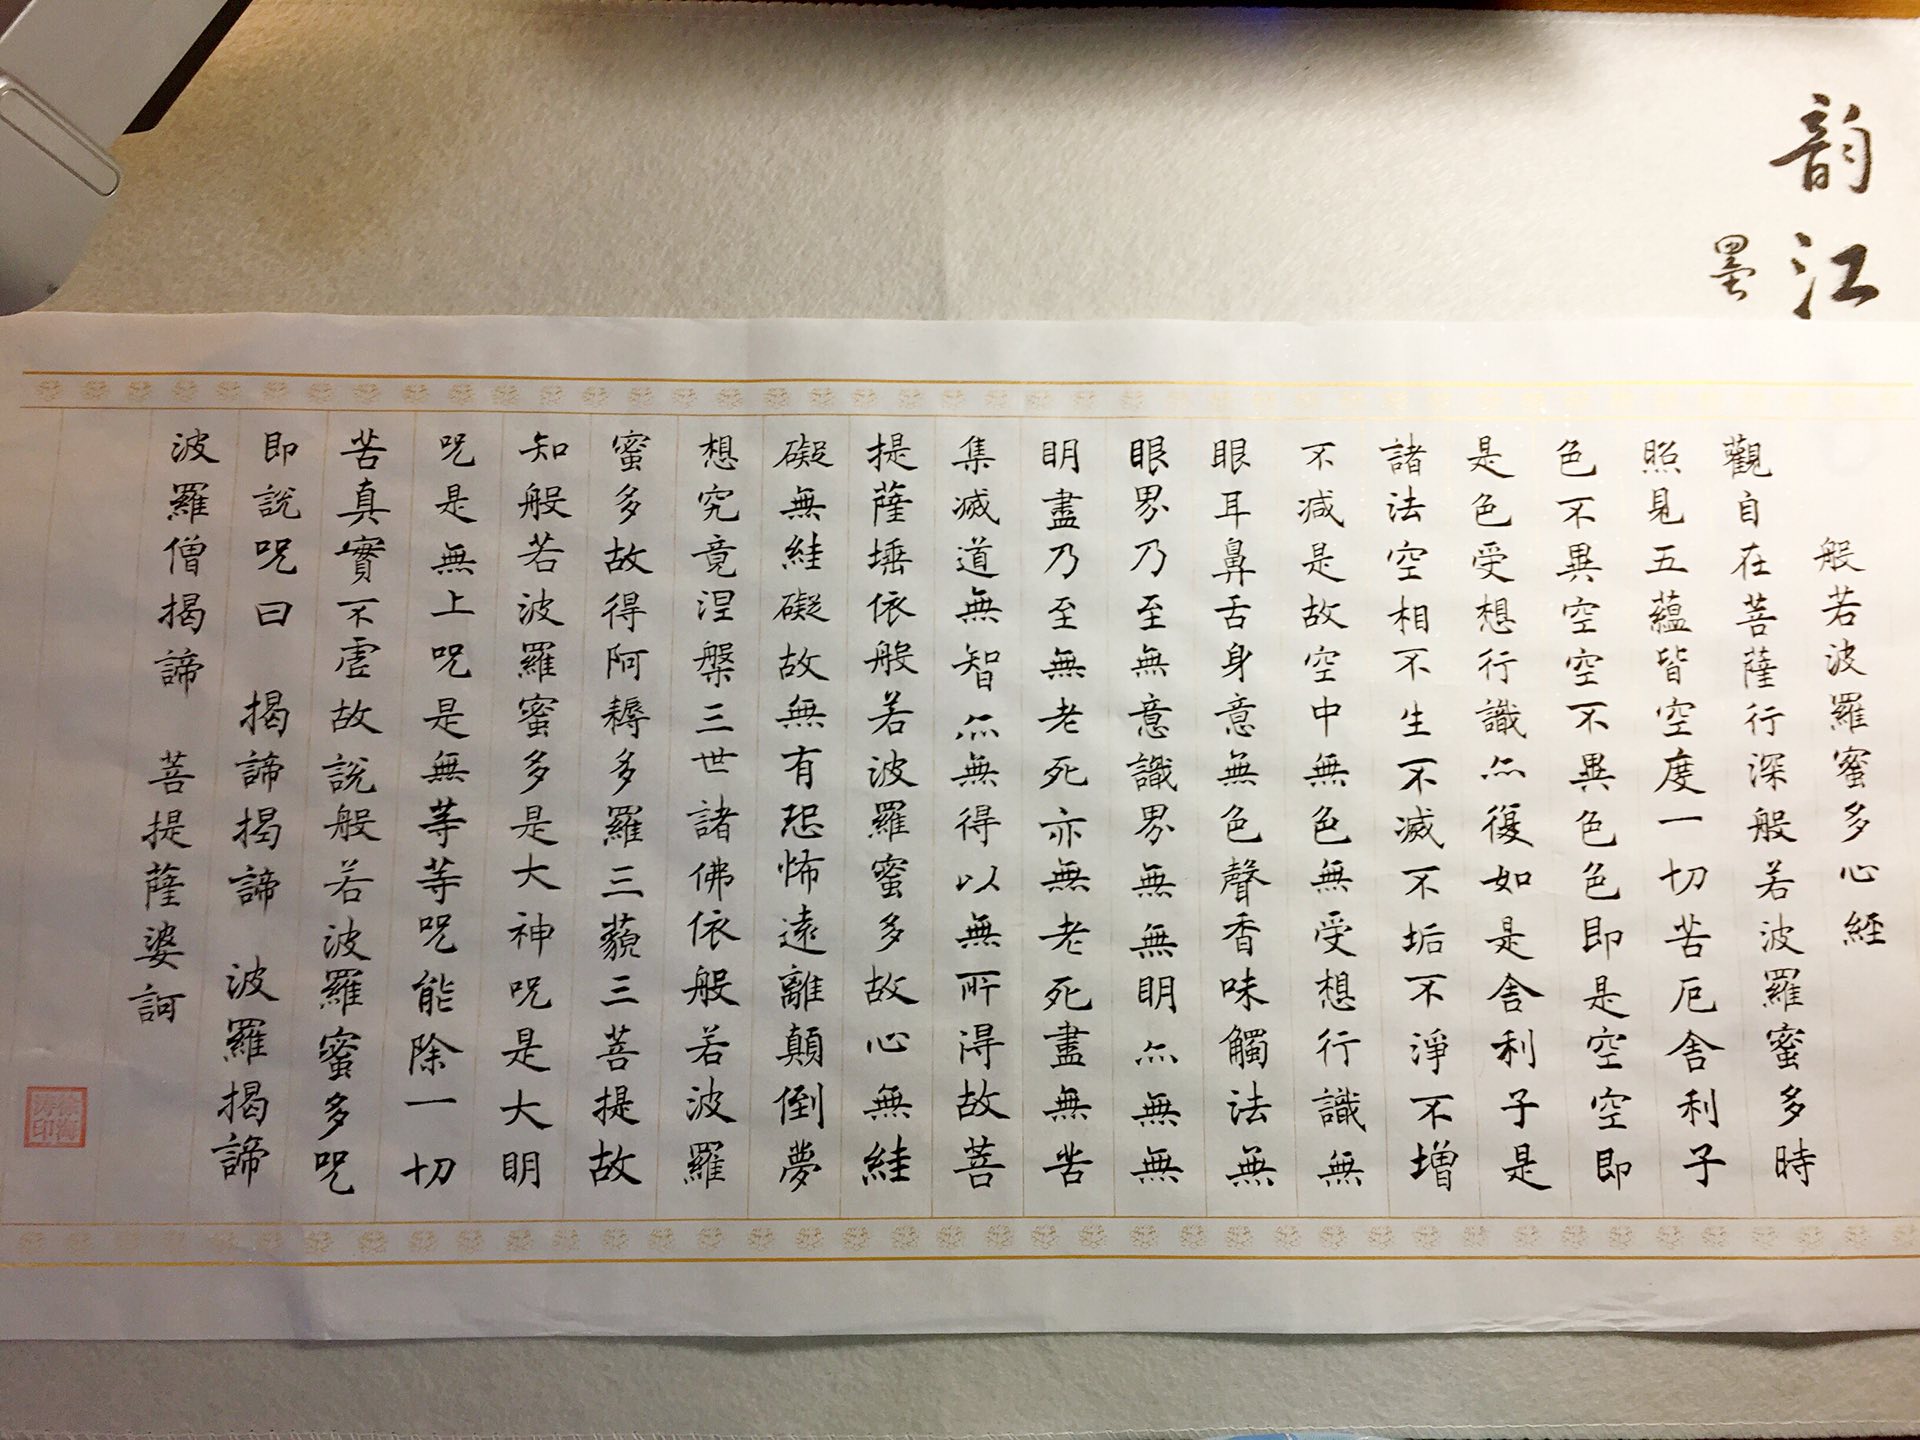 韵江
墨
般若波羅蜜多心経
觀自在菩薩行深般若波羅蜜多時
照見五蘊皆空度一切苦厄舍利子
色不異空空不異色色即是空空即
是色受想行識亦復如是舍利子是
諸法空相不生不滅不垢不淨不增
不減是故空中無色無受想行識無
眼耳鼻舌身意無色聲香味觸法無
眼界乃至無意識界無無明亦無無
明盡乃至無老死亦無老死盡無苦
集滅道無智亦無得以無所得故菩
提薩埵依般若波羅蜜多故心無絓
礙無絓礙故無有恐怖遠離顛倒夢
想究竟涅槃三世諸佛依般若波羅
蜜多故得阿耨多羅三藐三菩提故
知般若波羅蜜多是大神呪是大明
呪是無上呪是無等等呪能除一切
苦真實不虛故説般若波羅蜜多呪
即説呪曰 揭諦揭諦 波羅揭諦
波羅僧揭諦 菩提薩婆訶